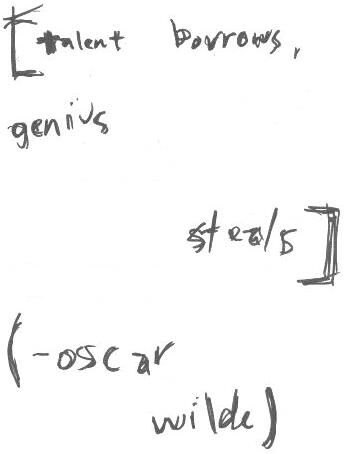 [talent borrows,
genius
steals]
(-oscar
wilde)